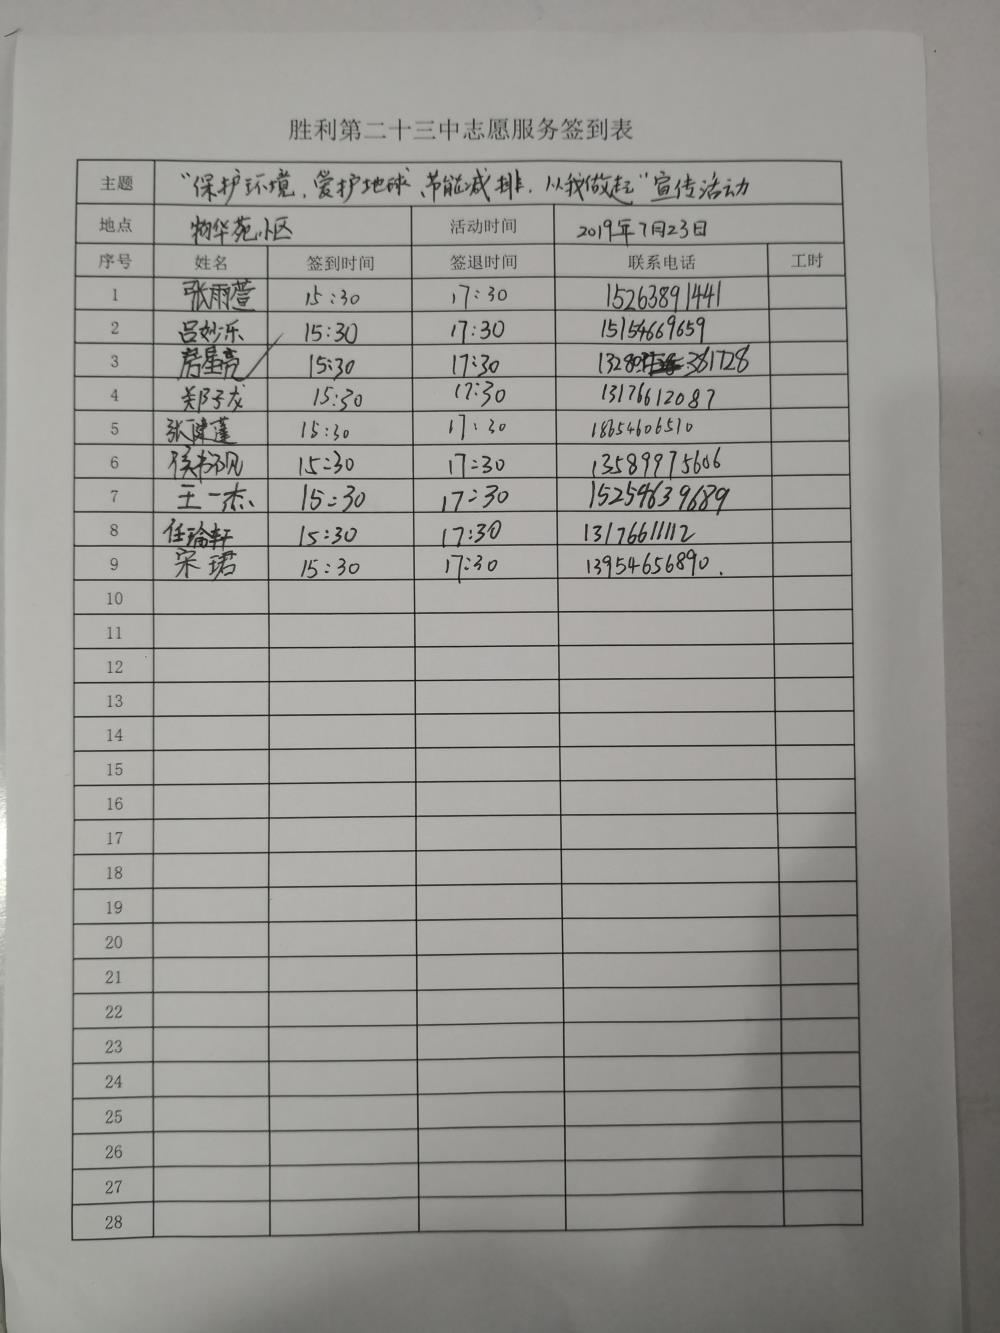 胜利第二十三中志愿服务签到表
主题 “保护环境、爱护地球、节能减排,从我做起”宣传活动
地点 物华苑小区 活动时间 2019年7月23日
序号 姓名 签到时间 签退时间 联系电话 工时
1 张雨萱 15:30 17:30 15263891441
2 吕妙乐 15:30 17:30 15154669659
3 房星亮 15:30 17:30 381728
4 郑子龙 15:30 17:30 13176612087
5 张建蓬 15:30 17:30 18654606510
6 15:30 17:30 13589975606
7 王一杰 15:30 17:30 15254639689
8 任瑜轩 15:30 17:30 13176611112
9 宋珺 15:30 17:30 13954656890.
10
11
12
13
14
15
16
17
18
19
20
21
22
23
24
25
26
27
28